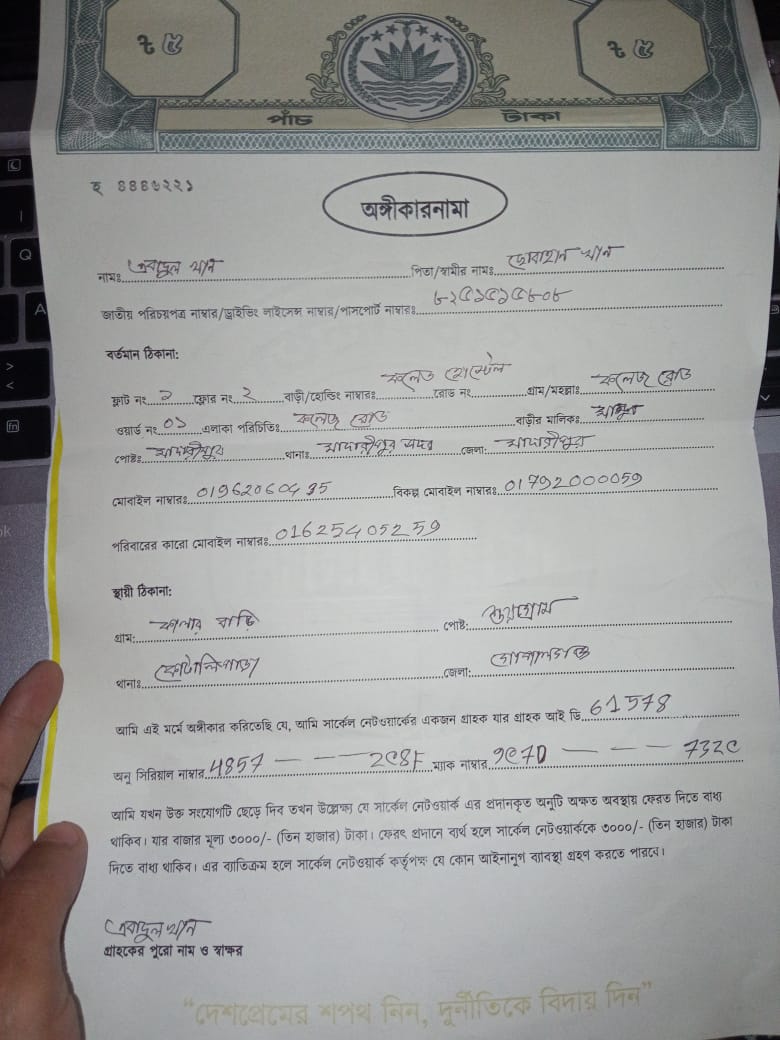 ৳ ৫ ৳ ৫
পাঁচ টাকা
হ ৪৪৪৬২২১
অঙ্গীকারনামা
নামঃ এবাদুল খান পিতা/স্বামীর নামঃ সোবাহান খান
জাতীয় পরিচয়পত্র নাম্বার/ড্রাইভিং লাইসেন্স নাম্বার/পাসপোর্ট নাম্বারঃ ৮২৫১৫১৫৮০৮
বর্তমান ঠিকানা:
ফ্লাট নং ২ ফ্লোর নং ২ বাড়ী/হোল্ডিং নাম্বারঃ কলেজ হোস্টেল রোড নং গ্রাম/মহল্লাঃ কলেজ রোড
ওয়ার্ড নং ০১ এলাকা পরিচিতিঃ কলেজ রোড বাড়ীর মালিকঃ
পোষ্টঃ মাদারীপুর থানাঃ মাদারীপুর সদর জেলা: মাদারীপুর
মোবাইল নাম্বারঃ 01962060435 বিকল্প মোবাইল নাম্বারঃ 01792000059
পরিবারের কারো মোবাইল নাম্বারঃ 01625405259
স্থায়ী ঠিকানা:
গ্রাম: কালার বাড়ি পোষ্ট: শুয়াগ্রাম
থানাঃ কোটালিপাড়া জেলা: গোপালগঞ্জ
আমি এই মর্মে অঙ্গীকার করিতেছি যে, আমি সার্কেল নেটওয়ার্কের একজন গ্রাহক যার গ্রাহক আই ডি 61578
অনু সিরিয়াল নাম্বার 4857 — — — 2C8F ম্যাক নাম্বার 9C7D — — — 732C
আমি যখন উক্ত সংযোগটি ছেড়ে দিব তখন উল্লেক্ষ্য যে সার্কেল নেটওয়ার্ক এর প্রদানকৃত অনুটি অক্ষত অবস্থায় ফেরত দিতে বাধ্য
থাকিব। যার বাজার মূল্য ৩০০০/- (তিন হাজার) টাকা। ফেরৎ প্রদানে ব্যর্থ হলে সার্কেল নেটওয়ার্ককে ৩০০০/- (তিন হাজার) টাকা
দিতে বাধ্য থাকিব। এর ব্যতিক্রম হলে সার্কেল নেটওয়ার্ক কর্তৃপক্ষ যে কোন আইনানুগ ব্যাবস্থা গ্রহণ করতে পারবে।
এবাদুল খান
গ্রাহকের পুরো নাম ও স্বাক্ষর
“দেশপ্রেমের শপথ নিন, দুর্নীতিকে বিদায় দিন”